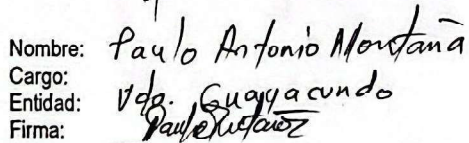 Nombre: Paulo Antonio Montaña
Cargo:
Entidad: Vda. Guayacundo
Firma: